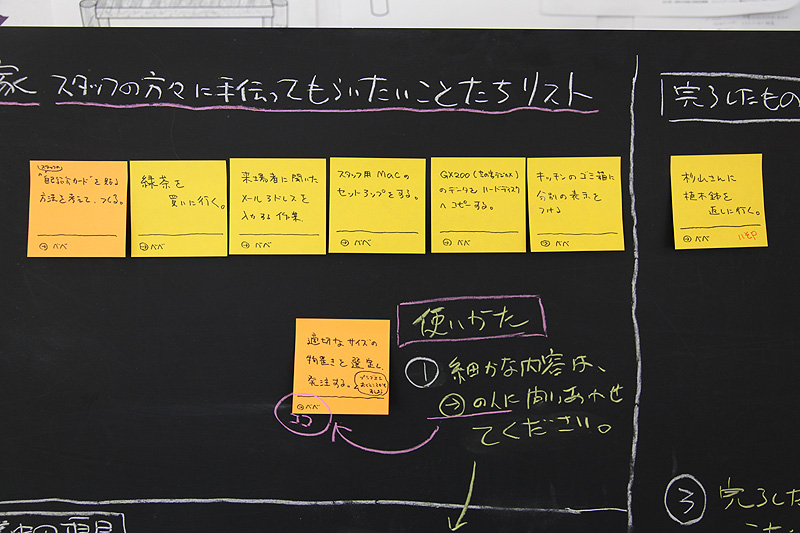 家 スタッフの方々に手伝ってもらいたいことたちリスト
完了したもの
"自己紹介カード"を貼る
方法を考えて、つくる。
→ べべ
緑茶を
買いに行く。
→ べべ
来場者に聞いた
メールアドレスを
入力する作業
→ べべ
スタッフ用Macの
セットアップをする。
→ べべ
GX200
のデータをハードディスク
へコピーする。
→ べべ
キッチンのゴミ箱に
分別の表示を
つける
→ べべ
杉山さんに
植木鉢を
返しに行く。
→ べべ
適切なサイズの
物置きを選定し、
発注する。
→ べべ
ココ
使いかた
① 細かな内容は、
→の人に問いあわせ
てください。
③ 完了した